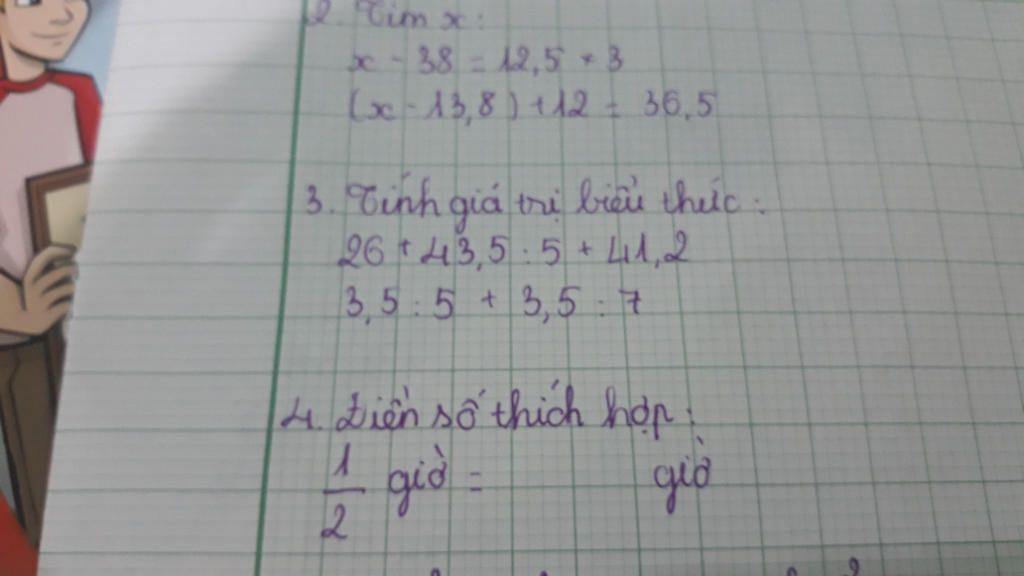 2. Tìm x:
x - 38 = 12,5 + 3
(x - 13,8) + 12 = 36,5
3. Tính giá trị biểu thức:
26 + 43,5 : 5 + 41,2
3,5 : 5 + 3,5 : 7
4. Điền số thích hợp:
1/2 giờ = giờ